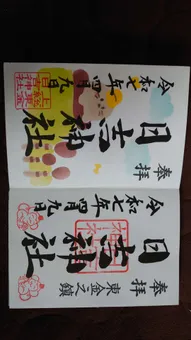 奉拝
日吉神社
令和七年四月九日
奉拝 東金之鎮
日吉神社
令和七年四月九日